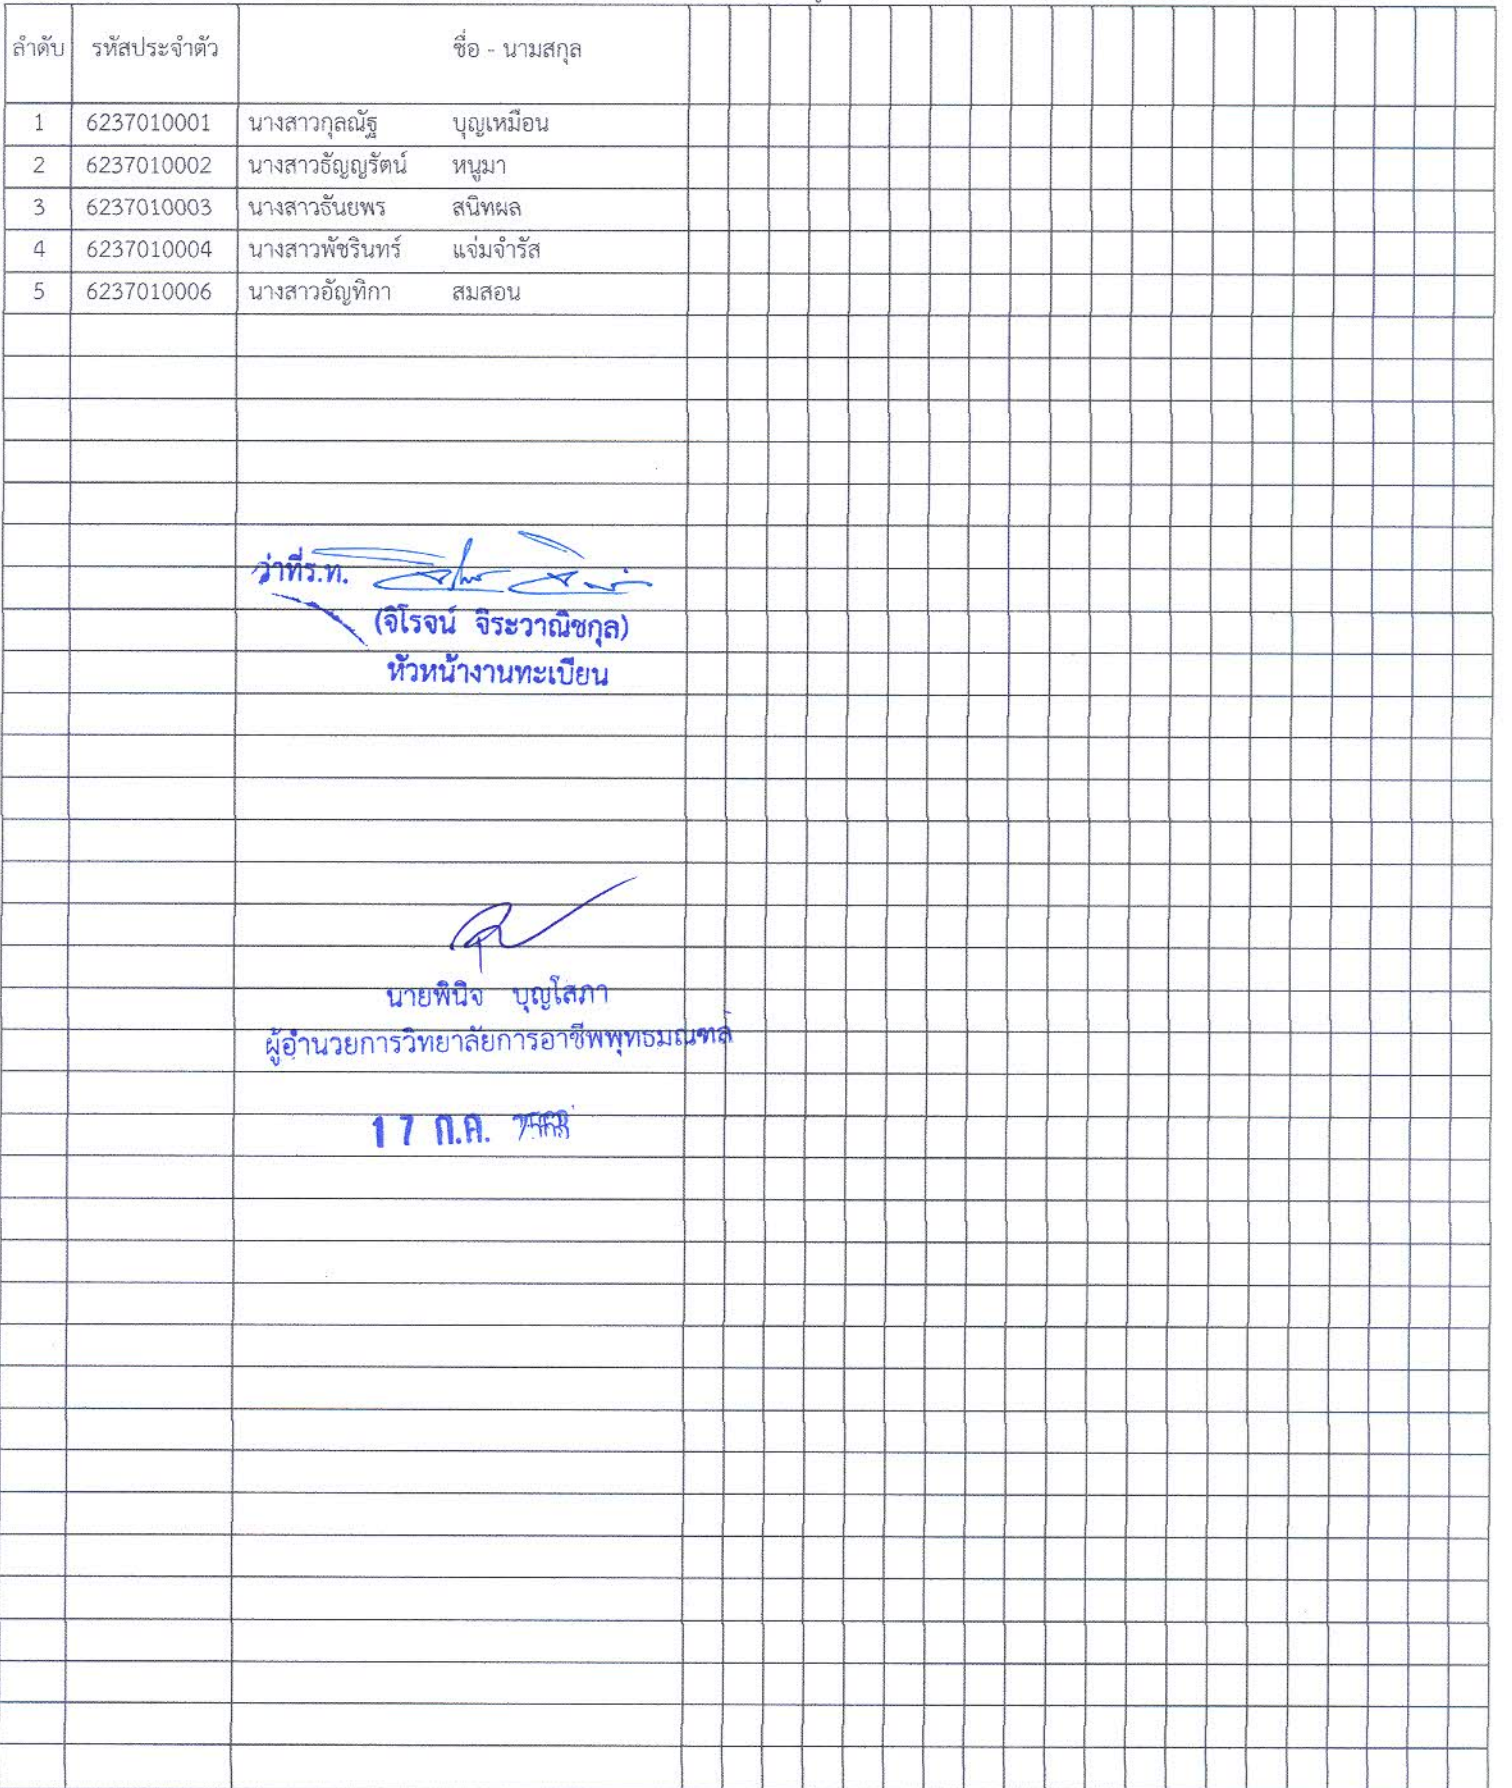 ลำดับ รหัสประจำตัว ชื่อ - นามสกุล
1 6237010001 นางสาวกุลณัฐ บุญเหมือน
2 6237010002 นางสาวธัญญรัตน์ หนูมา
3 6237010003 นางสาวธันยพร สนิทผล
4 6237010004 นางสาวพัชรินทร์ แจ่มจำรัส
5 6237010006 นางสาวอัญทิกา สมสอน
ว่าที่ร.ท.
(จิโรจน์ จิระวาณิชกุล)
หัวหน้างานทะเบียน
นายพินิจ บุญโสภา
ผู้อำนวยการวิทยาลัยการอาชีพพุทธมณฑล
17 ก.ค.